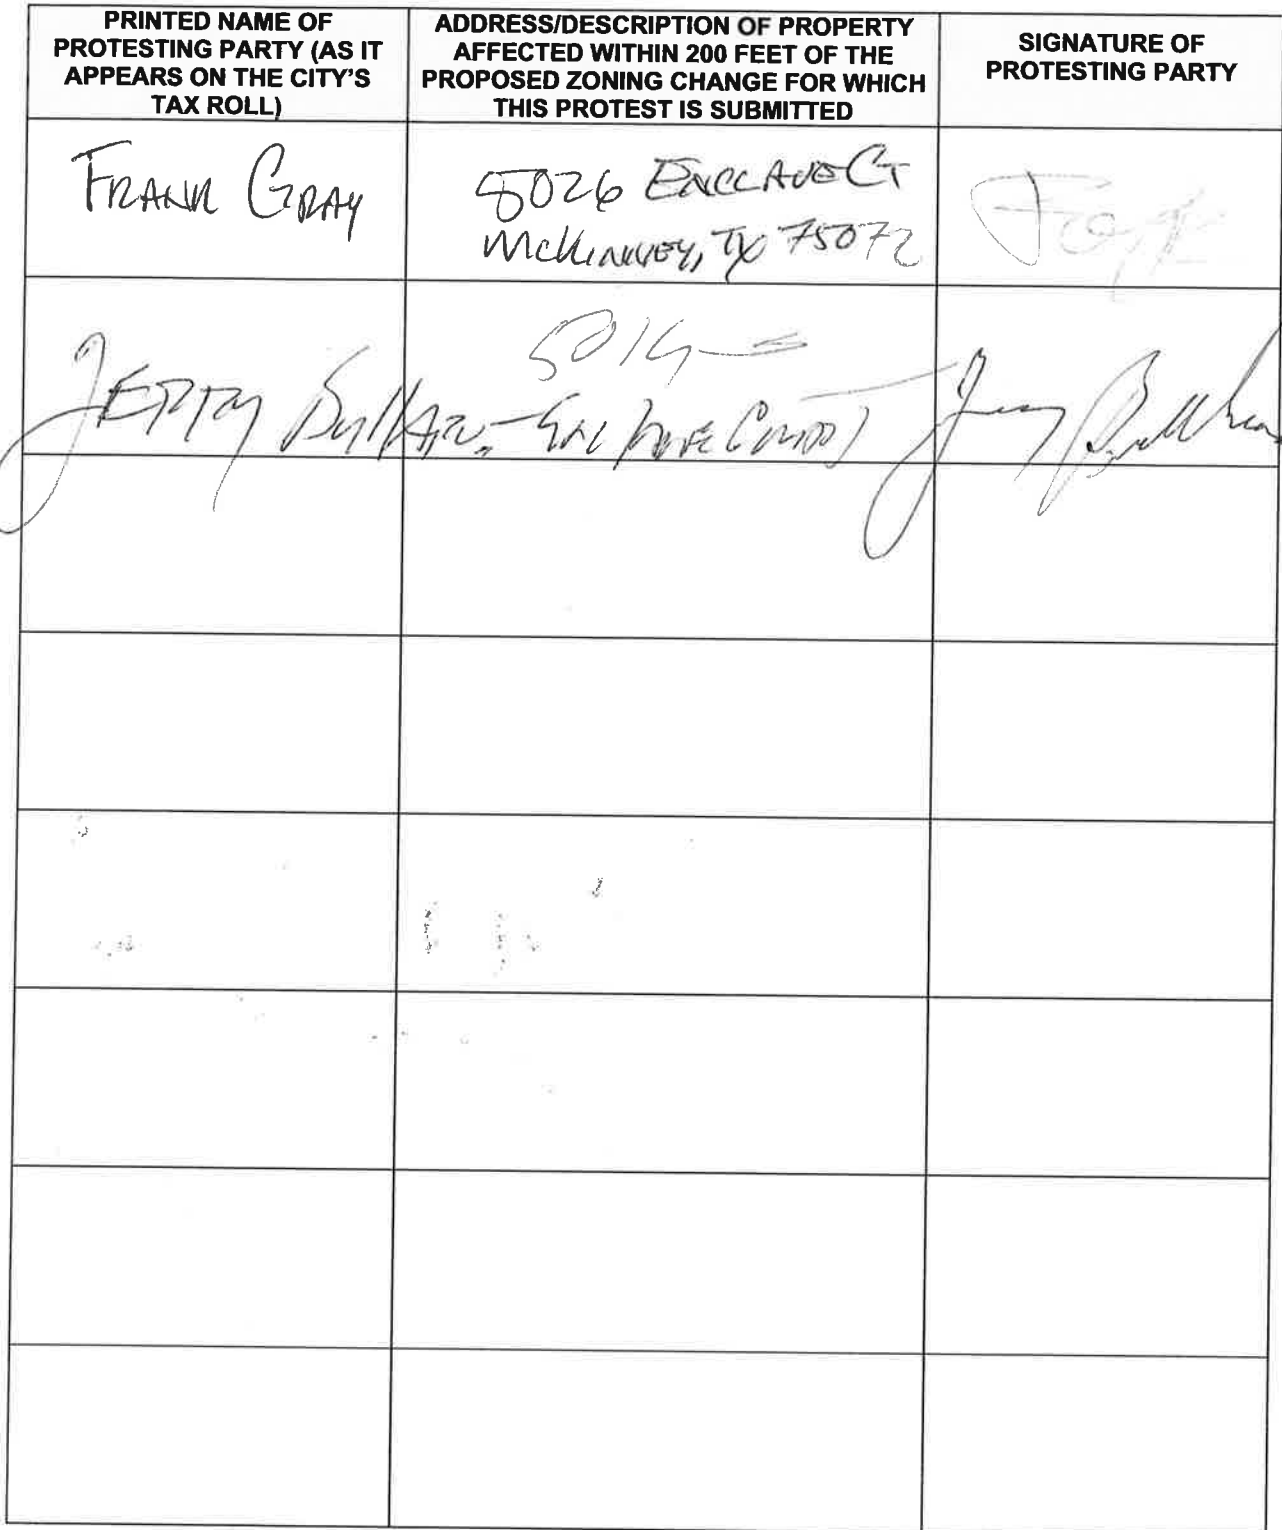 PRINTED NAME OF
PROTESTING PARTY (AS IT
APPEARS ON THE CITY'S
TAX ROLL)
ADDRESS/DESCRIPTION OF PROPERTY
AFFECTED WITHIN 200 FEET OF THE
PROPOSED ZONING CHANGE FOR WHICH
THIS PROTEST IS SUBMITTED
SIGNATURE OF
PROTESTING PARTY
FRANK GRAY
5026 ENCLAVE CT
McKINNEY, TX 75072
JERRY